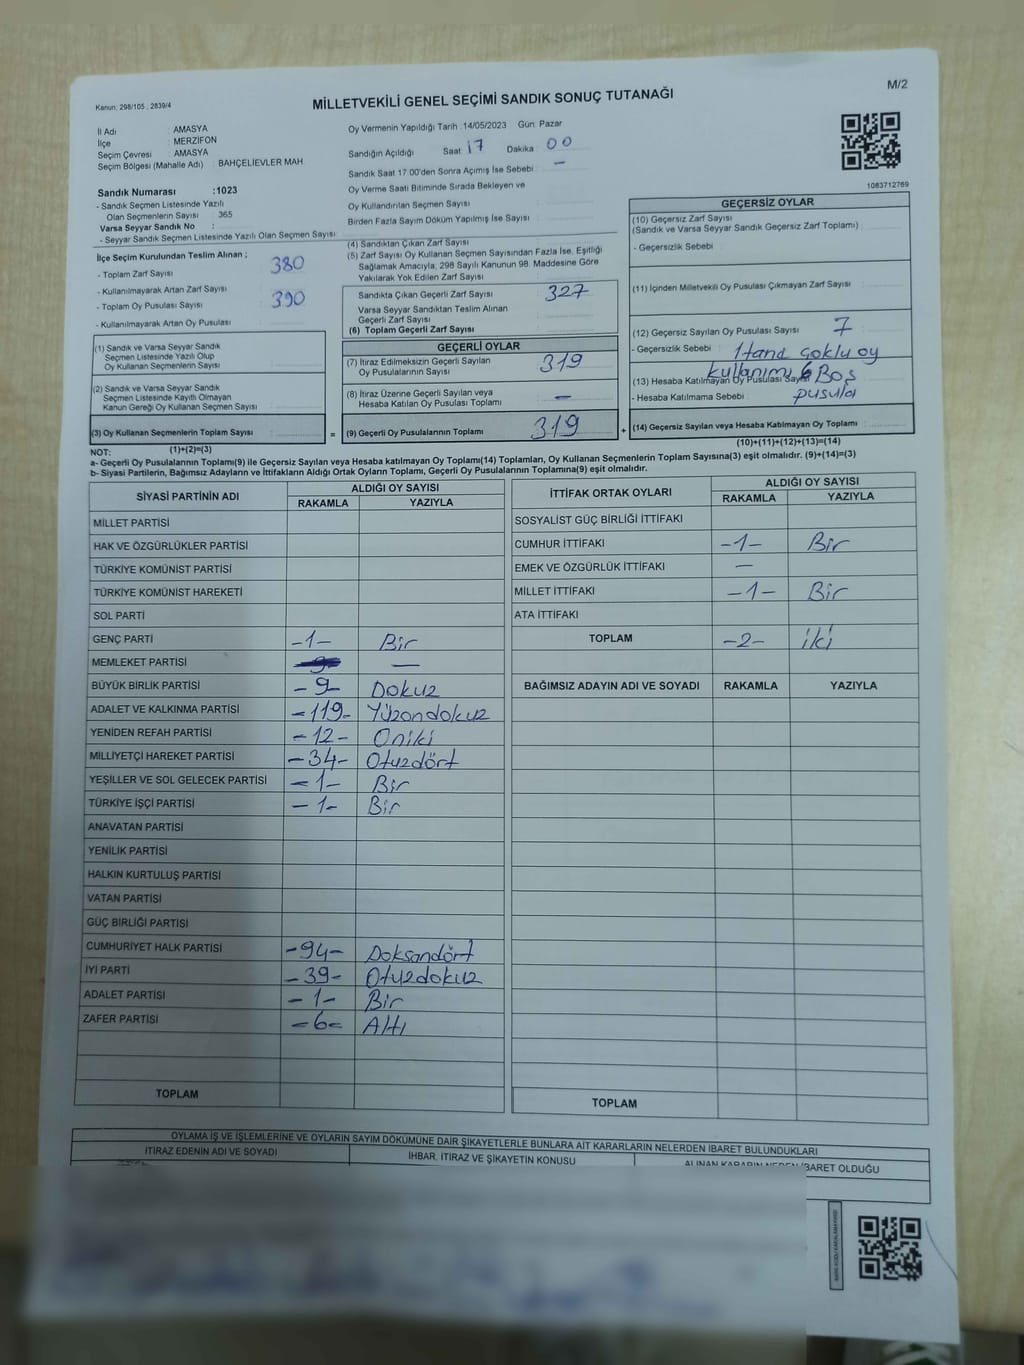 M/2
Kanun: 298/105 , 2839/4
MİLLETVEKİLİ GENEL SEÇİMİ SANDIK SONUÇ TUTANAĞI
İl Adı : AMASYA
İlçe : MERZİFON
Seçim Çevresi : AMASYA
Seçim Bölgesi (Mahalle Adı) : BAHÇELİEVLER MAH.
Sandık Numarası :1023
- Sandık Seçmen Listesinde Yazılı
Olan Seçmenlerin Sayısı : 365
Varsa Seyyar Sandık No :
- Seyyar Sandık Seçmen Listesinde Yazılı Olan Seçmen Sayısı:
Oy Vermenin Yapıldığı Tarih :14/05/2023 Gün: Pazar
Sandığın Açıldığı Saat 17 Dakika 00
Sandık Saat 17.00'den Sonra Açımış İse Sebebi : —
Oy Verme Saati Bitiminde Sırada Bekleyen ve
Oy Kullandırılan Seçmen Sayısı
Birden Fazla Sayım Döküm Yapılmış İse Sayısı :
1083712769
İlçe Seçim Kurulundan Teslim Alınan ;
- Toplam Zarf Sayısı : 380
- Kullanılmayarak Artan Zarf Sayısı :
- Toplam Oy Pusulası Sayısı : 390
- Kullanılmayarak Artan Oy Pusulası :
(1) Sandık ve Varsa Seyyar Sandık
Seçmen Listesinde Yazılı Olup
Oy Kullanan Seçmenlerin Sayısı :
(2) Sandık ve Varsa Seyyar Sandık
Seçmen Listesinde Kayıtlı Olmayan
Kanun Gereği Oy Kullanan Seçmen Sayısı :
(3) Oy Kullanan Seçmenlerin Toplam Sayısı :
(1)+(2)=(3)
(4) Sandıktan Çıkan Zarf Sayısı :
(5) Zarf Sayısı Oy Kullanan Seçmen Sayısından Fazla İse, Eşitliği
Sağlamak Amacıyla, 298 Sayılı Kanunun 98. Maddesine Göre
Yakılarak Yok Edilen Zarf Sayısı :
Sandıkta Çıkan Geçerli Zarf Sayısı : 327
Varsa Seyyar Sandıktan Teslim Alınan
Geçerli Zarf Sayısı :
(6) Toplam Geçerli Zarf Sayısı :
GEÇERLİ OYLAR
(7) İtiraz Edilmeksizin Geçerli Sayılan
Oy Pusulalarının Sayısı : 319
(8) İtiraz Üzerine Geçerli Sayılan veya
Hesaba Katılan Oy Pusulası Toplamı : —
= (9) Geçerli Oy Pusulalarının Toplamı : 319 +
GEÇERSİZ OYLAR
(10) Geçersiz Zarf Sayısı
(Sandık ve Varsa Seyyar Sandık Geçersiz Zarf Toplamı) :
- Geçersizlik Sebebi :
(11) İçinden Milletvekili Oy Pusulası Çıkmayan Zarf Sayısı :
(12) Geçersiz Sayılan Oy Pusulası Sayısı : 7
- Geçersizlik Sebebi : 1 tane çoklu oy
kullanımı 6 Boş
(13) Hesaba Katılmayan Oy Pusulası Sayısı :
- Hesaba Katılmama Sebebi : pusula
(14) Geçersiz Sayılan veya Hesaba Katılmayan Oy Toplamı :
(10)+(11)+(12)+(13)=(14)
NOT:
a- Geçerli Oy Pusulalarının Toplamı(9) ile Geçersiz Sayılan veya Hesaba katılmayan Oy Toplamı(14) Toplamları, Oy Kullanan Seçmenlerin Toplam Sayısına(3) eşit olmalıdır. (9)+(14)=(3)
b- Siyasi Partilerin, Bağımsız Adayların ve İttifakların Aldığı Ortak Oyların Toplamı, Geçerli Oy Pusulalarının Toplamına(9) eşit olmalıdır.
SİYASİ PARTİNİN ADI ALDIĞI OY SAYISI
RAKAMLA YAZIYLA
MİLLET PARTİSİ
HAK VE ÖZGÜRLÜKLER PARTİSİ
TÜRKİYE KOMÜNİST PARTİSİ
TÜRKİYE KOMÜNİST HAREKETİ
SOL PARTİ
GENÇ PARTİ -1- Bir
MEMLEKET PARTİSİ —
BÜYÜK BİRLİK PARTİSİ -9- Dokuz
ADALET VE KALKINMA PARTİSİ -119- Yüzondokuz
YENİDEN REFAH PARTİSİ -12- Oniki
MİLLİYETÇİ HAREKET PARTİSİ -34- Otuzdört
YEŞİLLER VE SOL GELECEK PARTİSİ -1- Bir
TÜRKİYE İŞÇİ PARTİSİ -1- Bir
ANAVATAN PARTİSİ
YENİLİK PARTİSİ
HALKIN KURTULUŞ PARTİSİ
VATAN PARTİSİ
GÜÇ BİRLİĞİ PARTİSİ
CUMHURİYET HALK PARTİSİ -94- Doksandört
İYİ PARTİ -39- Otuzdokuz
ADALET PARTİSİ -1- Bir
ZAFER PARTİSİ -6- Altı
TOPLAM
İTTİFAK ORTAK OYLARI ALDIĞI OY SAYISI
RAKAMLA YAZIYLA
SOSYALİST GÜÇ BİRLİĞİ İTTİFAKI
CUMHUR İTTİFAKI -1- Bir
EMEK VE ÖZGÜRLÜK İTTİFAKI —
MİLLET İTTİFAKI -1- Bir
ATA İTTİFAKI
TOPLAM -2- iki
BAĞIMSIZ ADAYIN ADI VE SOYADI RAKAMLA YAZIYLA
TOPLAM
OYLAMA İŞ VE İŞLEMLERİNE VE OYLARIN SAYIM DÖKÜMÜNE DAİR ŞİKAYETLERLE BUNLARA AİT KARARLARIN NELERDEN İBARET BULUNDUKLARI
İTİRAZ EDENİN ADI VE SOYADI
İHBAR, İTİRAZ VE ŞİKAYETİN KONUSU
ALINAN KARARIN NEDEN İBARET OLDUĞU